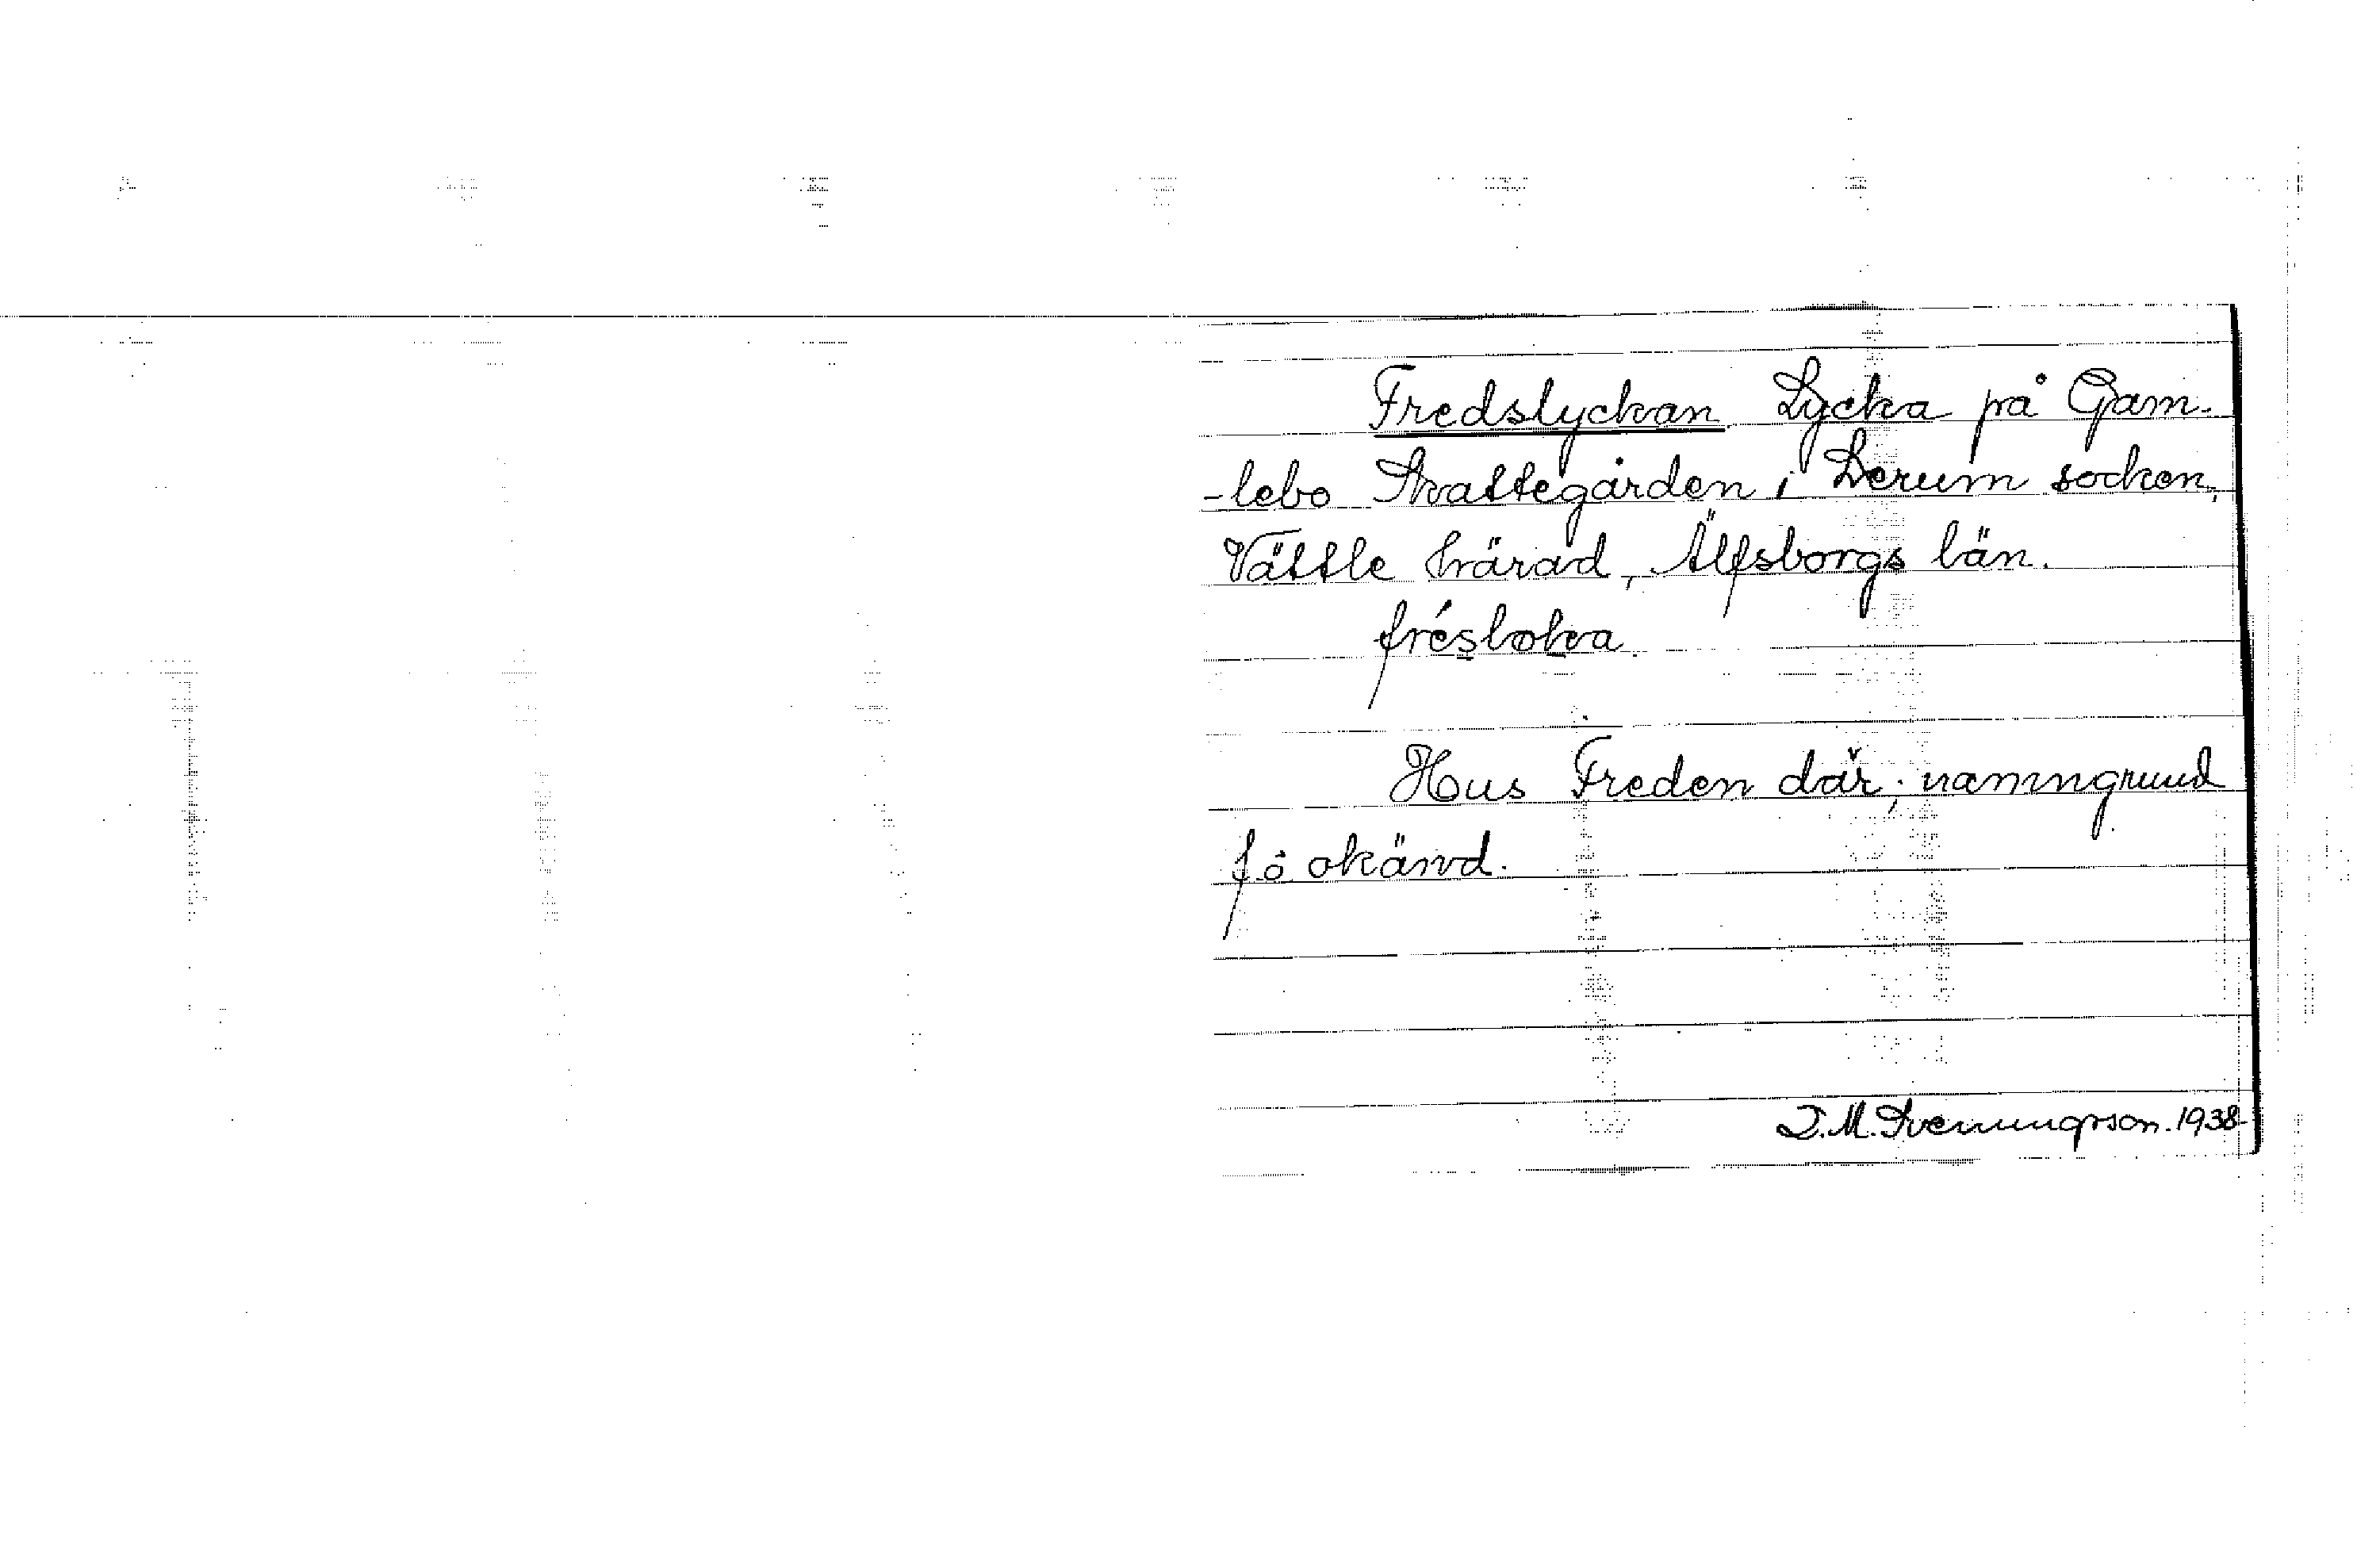 Fredslyckan Lycka på Gam-
-lebo Skattegården i Lerum socken,
Vättle härad, Älfsborgs län.
frésloka
Hus Freden där; namngrund
f.ö okänd.
D.M. Svenungsson. 1938